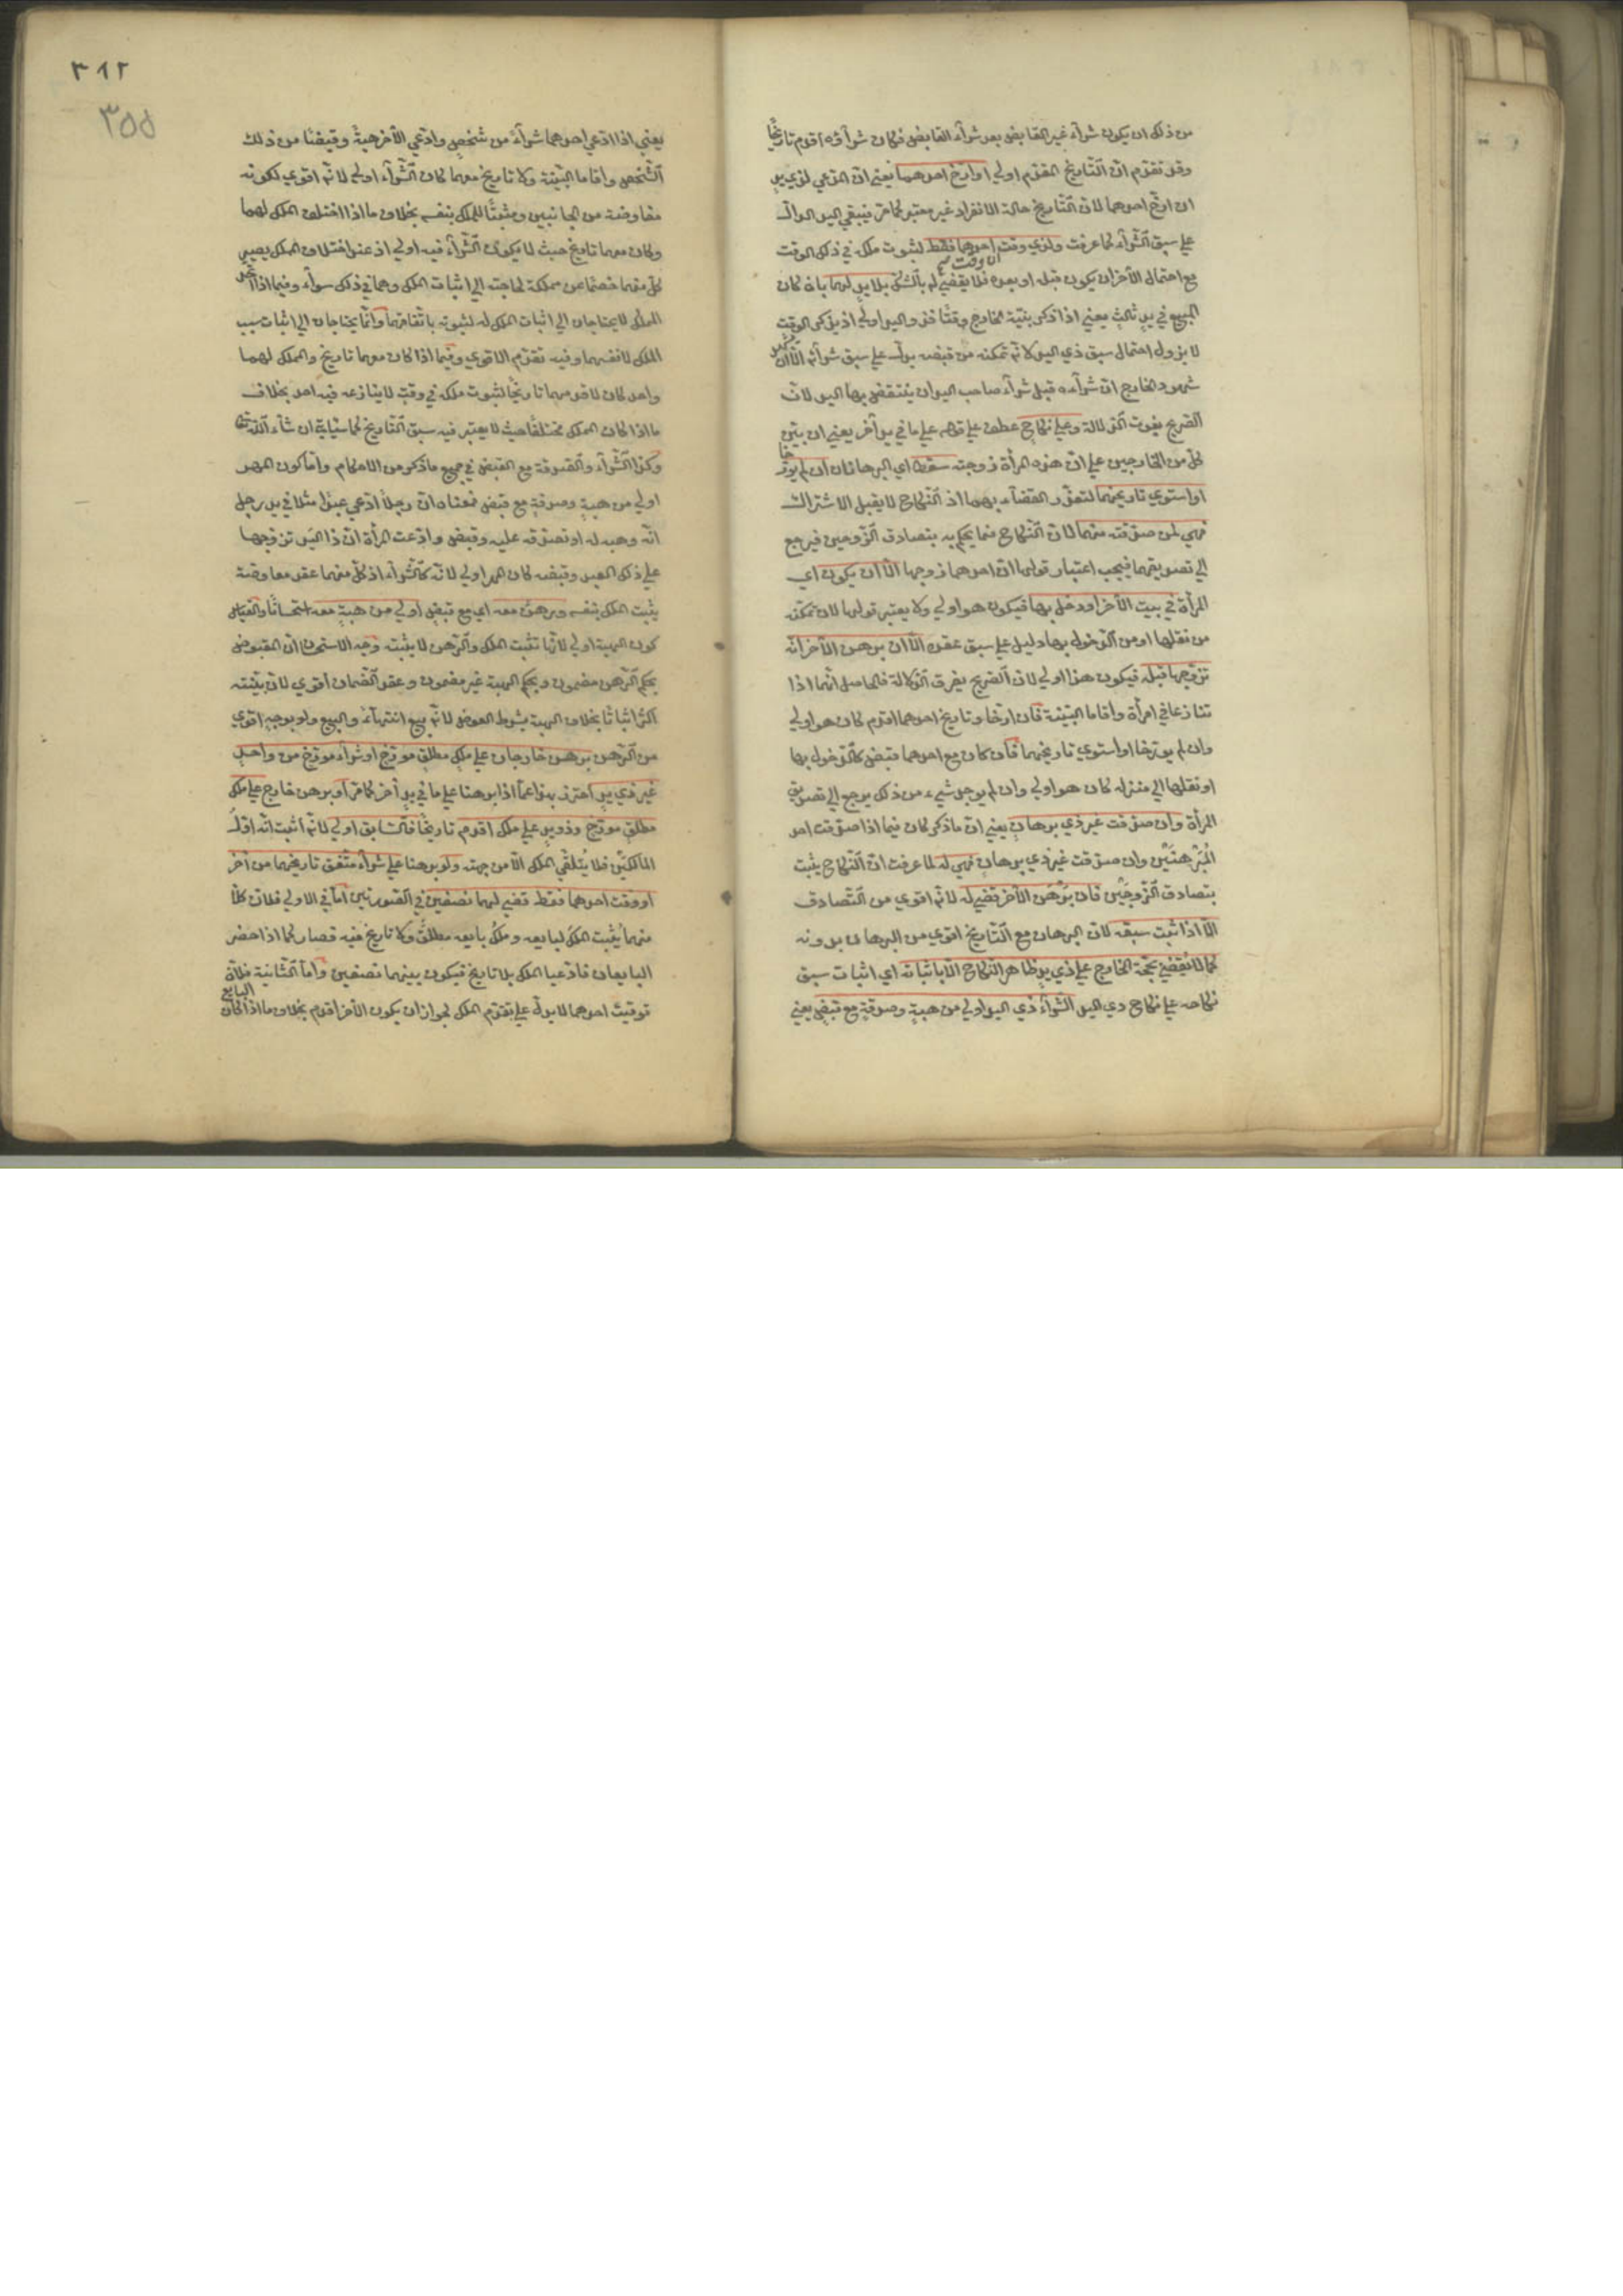 من ذلك ان يكون شراء غير القابض بعد شراء القابض فكان شراؤه اقدم تاريخا
وقد تقدم ان التاريخ المقدم اولى او ارخ احدهما يعني ان المدعي لذي يد
ان ارخ احدهما لان التاريخ حالة الانفراد غير معتبر كما مر فيبقى اليد الدال
على سبق الشراء كما عرفت ولذي وقت احدهما فقط لثبوت ملكه في ذلك الوقت
مع احتمال الآخر ان يكون قبله او بعده فلا يقضى له بالشك بلا يد لهما بان كان
المبيع في يد ثالث يعني اذا ذكر بينة الخارج وقتا فذو اليد اولى اذ بذكر الوقت
لا يزول احتمال سبق ذي اليد لانه تمكنه من قبضه يدل على سبق شرائه الا ان
شهود الخارج ان شراءه قبل شراء صاحب اليد ان ينتقض بها اليد لان
الصريح يفوت الدلالة وعلى نكاح عطف على قوله على ما في يد آخر يعني ان بين
كل من الخارجين على ان هذه المرأة زوجته سقط اي البرهانان ان لم يؤرخا
او استوى تاريخهما لتعذر القضاء بهما اذ النكاح لا يقبل الاشتراك
فهي لمن صدقته منهما لان النكاح مما يحكم به بتصادق الزوجين فيرجع
الى تصديقهما فيجب اعتبار قولها ان احدهما زوجها الا ان يكون اي
المرأة في بيت الآخر او دخل بها فيكون هو اولى ولا يعتبر قولها لان تمكنه
من نقلها او من الدخول بها دليل على سبق عقده الا ان برهن الآخر انه
تزوجها قبله فيكون هذا اولى لان الصريح يفرق الدلالة فالحاصل انهما اذا
تنازعا في امرأة واقاما البينة فان ارخا وتاريخ احدهما اقدم كان هو اولى
وان لم يؤرخا او استوى تاريخهما فان كان مع احدهما قبض كالدخول بها
او نقلها الى منزله كان هو اولى وان لم يوجد شيء من ذلك يرجع الى تصديق
المرأة وان صدقت غير ذي برهان يعني ان ما ذكر كان فيما اذا صدقت احد
المبرهنين وان صدقت غير ذي برهان فهي له لما عرفت ان النكاح يثبت
بتصادق الزوجين فان برهن الآخر قضي له لانه اقوى من التصادق
الا اذا ثبت سبقه لان البرهان مع التاريخ اقوى من البرهان بدونه
كما لا يقضى بحجة الخارج على ذي يد ظاهر النكاح الا باثباته اي اثبات سبق
نكاحه على نكاح ذي اليد الشراء ذي اليد اولى من هبة وصدقة مع قبض يعني
٣١٢
٣٥٥
يعني اذا ادعى احدهما شراء من شخص وادعى الآخر هبة وقبضا من ذلك
الشخص واقاما البينة ولا تاريخ معهما كان الشراء اولى لانه اقوى لكونه
معاوضة من الجانبين ومثبتا للملك بنفسه بخلاف ما اذا اختلف الملك لهما
وكان معهما تاريخ حيث لا يكون الشراء فيه اولى اذ عند اختلاف الملك يصير
كل منهما خصما عن مملكه لحاجته الى اثبات الملك وهما في ذلك سواء وفيما اذا اتحد
المملك لا يحتاجان الى اثبات الملك له لثبوته باتفاقهما وانما يحتاجان الى اثبات سبب
الملك لانفسهما وفيه تقدم الاقوى وفيما اذا كان معهما تاريخ والمملك لهما
واحد كان لاقدمهما تاريخا لثبوت ملكه في وقت لا ينازعه فيه احد بخلاف
ما اذا كان المملك مختلفا حيث لا يعتبر فيه سبق التاريخ كما سيأتي ان شاء الله تعالى
وكذا الشراء والصدقة مع القبض في جميع ما ذكر من الاحكام واما كون المهر
اولى من هبة وصدقة مع قبض فمعناه ان رجلا ادعى عبدا مثلا في يد رجل
انه وهبه له او تصدق عليه وقبض وادعت المرأة ان ذا اليد تزوجها
على ذلك العبد وقبضه كان المهر اولى لانه كالشراء اذ كل منهما عقد معاوضة
يثبت الملك بنفسه ورهن معه اي مع قبض اولى من هبة معه استحسانا والقياس
كون الهبة اولى لانها تثبت الملك والرهن لا يثبته وجه الاستحسان ان المقبوض
بحكم الرهن مضمون وبحكم الهبة غير مضمون وعقد الضمان اقوى لان بينته
اكثر اثباتا بخلاف الهبة بشرط العوض لانه بيع انتهاء والبيع ولو بوجه اقوى
من الرهن برهن خارجان على ملك مطلق مؤرخ او شراء مؤرخ من واحد
غير ذي يد احترز به عما اذا برهنا على ما في يد آخر كما مر او برهن خارج على ملك
مطلق مؤرخ وذو يد على ملك اقدم تاريخا فالسابق اولى لانه اثبت انه اول
المالكين فلا يتلقى الملك الا من جهته ولو برهنا على شراء متفق تاريخهما من آخر
او وقت احدهما فقط قضي لهما نصفين في الصورتين اما في الاولى فلان كلا
منهما يثبت الملك لبايعه وملك بايعه مطلق ولا تاريخ فيه فصار كما اذا حضر
البايعان فادعيا الملك بلا تاريخ فيكون بينهما نصفين واما الثانية فلان
توقيت احدهما لا يدل على تقدم الملك لجواز ان يكون الآخر اقدم بخلاف ما اذا كان البايع